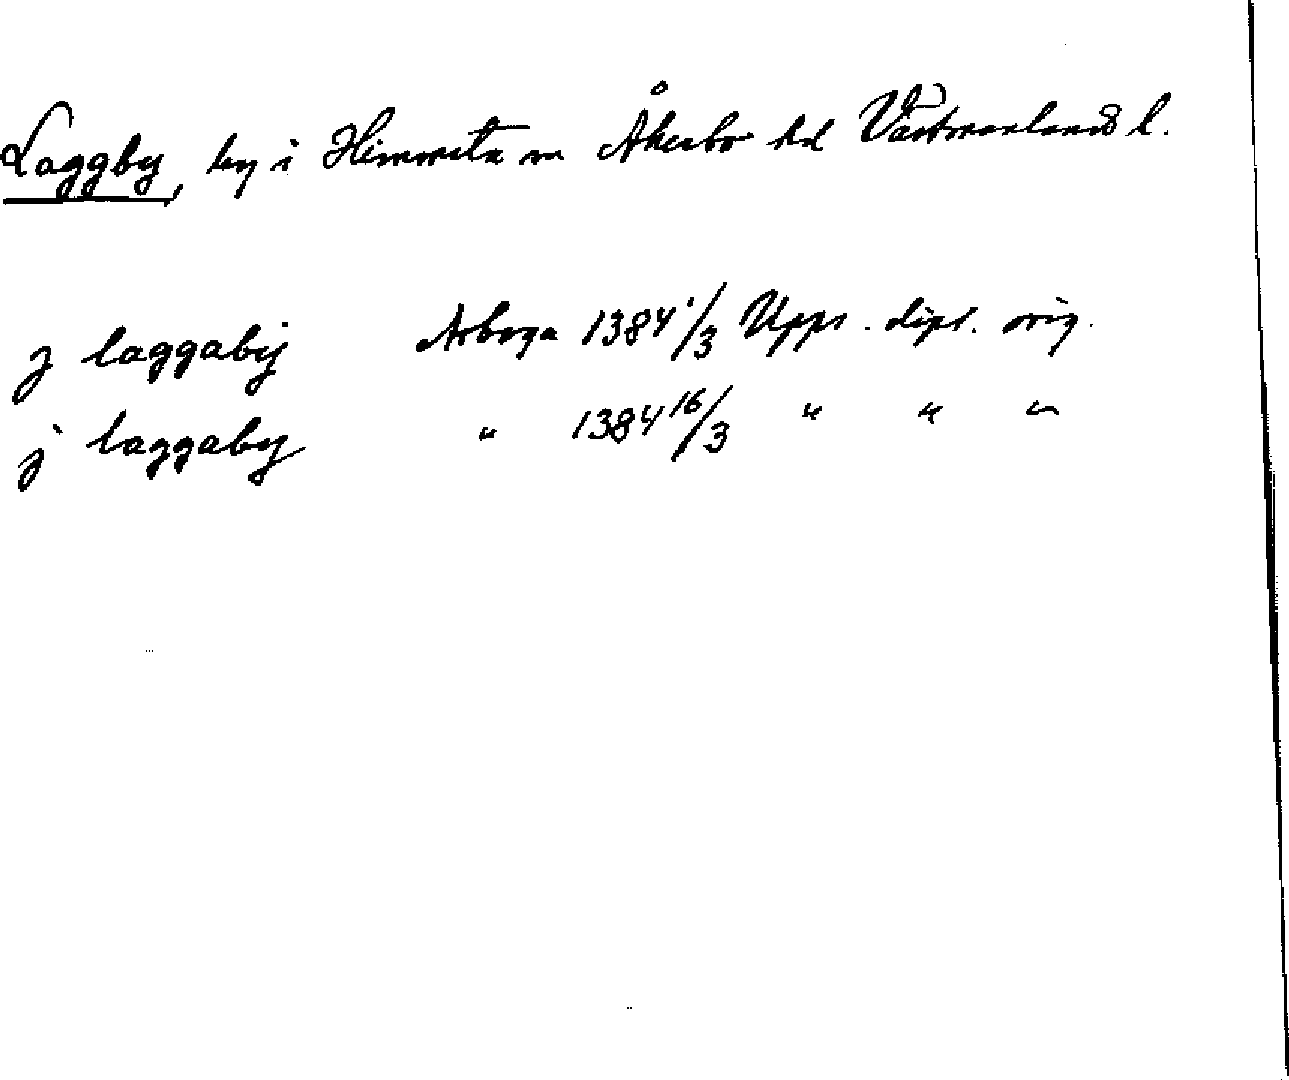 Laggby, by i Himmeta sn Åkerbo hd Västmanlands l.
j laggaby Arboga 1384 1/3 Upps. dipl. orig.
j laggaby " 1384 16/3 " " "